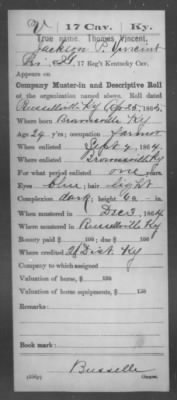 V 17 Cav. Ky.
True name, Thomas Vincent,
Jackson P. Vincent
17 Reg't Kentucky Cav.
Appears on
Company Muster-in and Descriptive Roll
of the organization named above. Roll dated
Russellville Ky Apr 25, 1865.
Where born Brownsville Ky
Age 29 y'rs; occupation farmer
When enlisted Sept 7, 1864.
Where enlisted Brownsville Ky
For what period enlisted one years.
Eyes blue; hair light
Complexion dark; height 6 ft. in.
When mustered in Dec 3, 1864
Where mustered in Russellville Ky
Bounty paid $ 100; due $ 100
Where credited 2d Dist. Ky
Company to which assigned
Valuation of horse, $ 100
Valuation of horse equipments, $ 100
Remarks:
Book mark:
Busselle
(356g) Copyist.